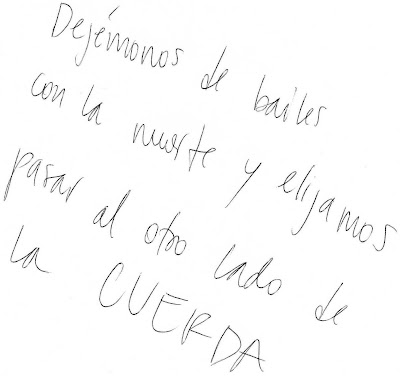 Dejémonos de bailes
con la muerte y elijamos
pasar al otro lado de
la CUERDA